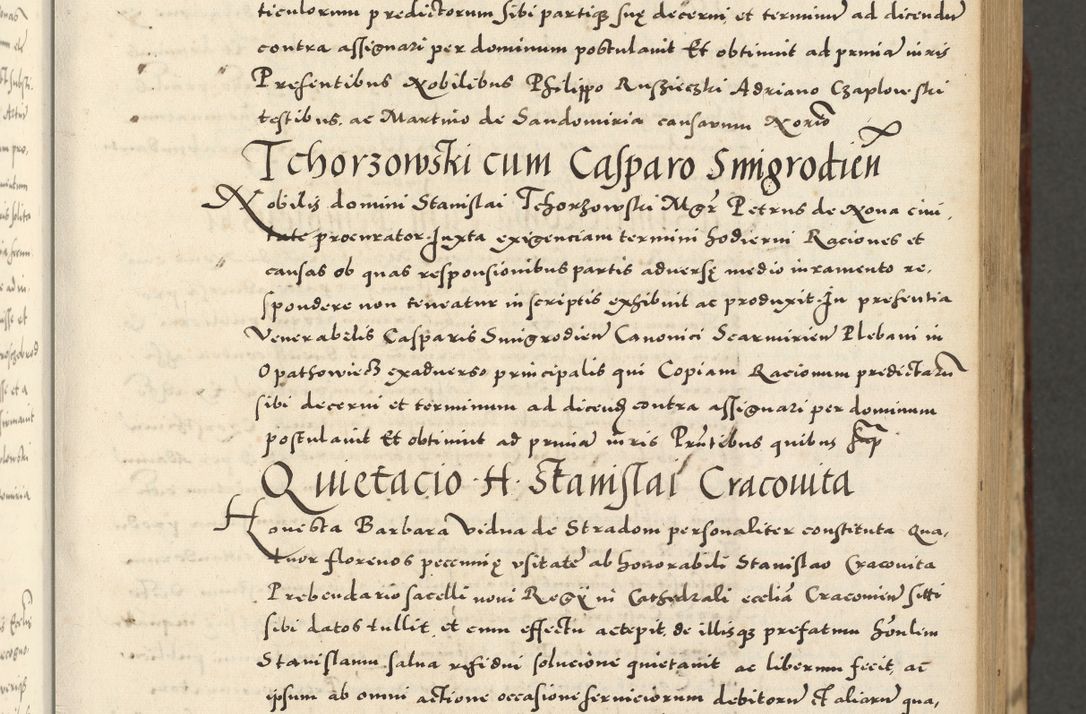 ticulorum predictorum sibi partiq₃ suę decerni et terminū ad dicendū
contra assignari per dominum postulavit Et obtinuit ad prmiā iuris
Presentibus Nobilibus Philippo Ruszieczki Adriano Czaplowski
testibus. ac Martino de Sandomiria causarum Norio
Tchorzowski cum Casparo Smigrodien
Nobilis domini Stanislai Tchorzowski Mgr̄ Petrus de Nova civi,
tate procurator Juxta exigenciam termini hodierni Raciones et
causas ob quas responsionibus partis adversę medio iuramento re,
spondere non teneatur in scriptis exhibuit ac produxit In presentia
Venerabilis Casparis Smigrodien̄ Canonici Scarmirien̄ Plebani in
Opathowiecz exadverso principalis qui Copiam Racionum predictarū
sibi decerni et terminum ad dicend contra assignari per dominum
postulavit Et obtinuit ad prmiā iuris Prn̄tibus quibus
Quietacio H. Stanislai Cracovita
Honesta Barbara vidua de Stradom personaliter constituta Qua,
tuor florenos peccunię usitatē ab honorabili Stanislao Cracovita
Prebendario sacelli novi Regŋ in Cathedrali eccliā Cracovien̄
sibi datos tullit, et cum effectu accepit, de illisq₃ prefatum hon̄lem
Stanislaum salva residui solucione quietavit ac liberum fecit, ac
ipsum ab omni actione occasione serviciorum debitorū et aliarū qua,